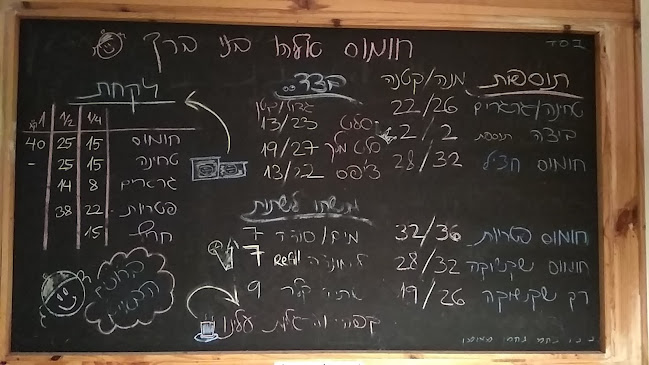 בסד
חומוס אליהו בני ברק
תוספות מנה/קטנה
טחינה/גרגרים 22/26
ביצה תוספת 2/2
חומוס חציל 28/32
חומוס פטריות 32/36
חומוס שקשוקה 28/32
רק שקשוקה 19/26
בצד..
גדול/קטן
סלט 13/23
סלט מלך 19/27
צ'יפס 13/22
משהו לשתות
מים/סודה 7
לימונדה Refill 7
9
קפה עלינו
לקחת
1 1/2 1/4
חומוס 15 25 40
טחינה 15 25 -
גרגרים 8 14
פטריות 22 38
חריף 15
ברוכים הבאים